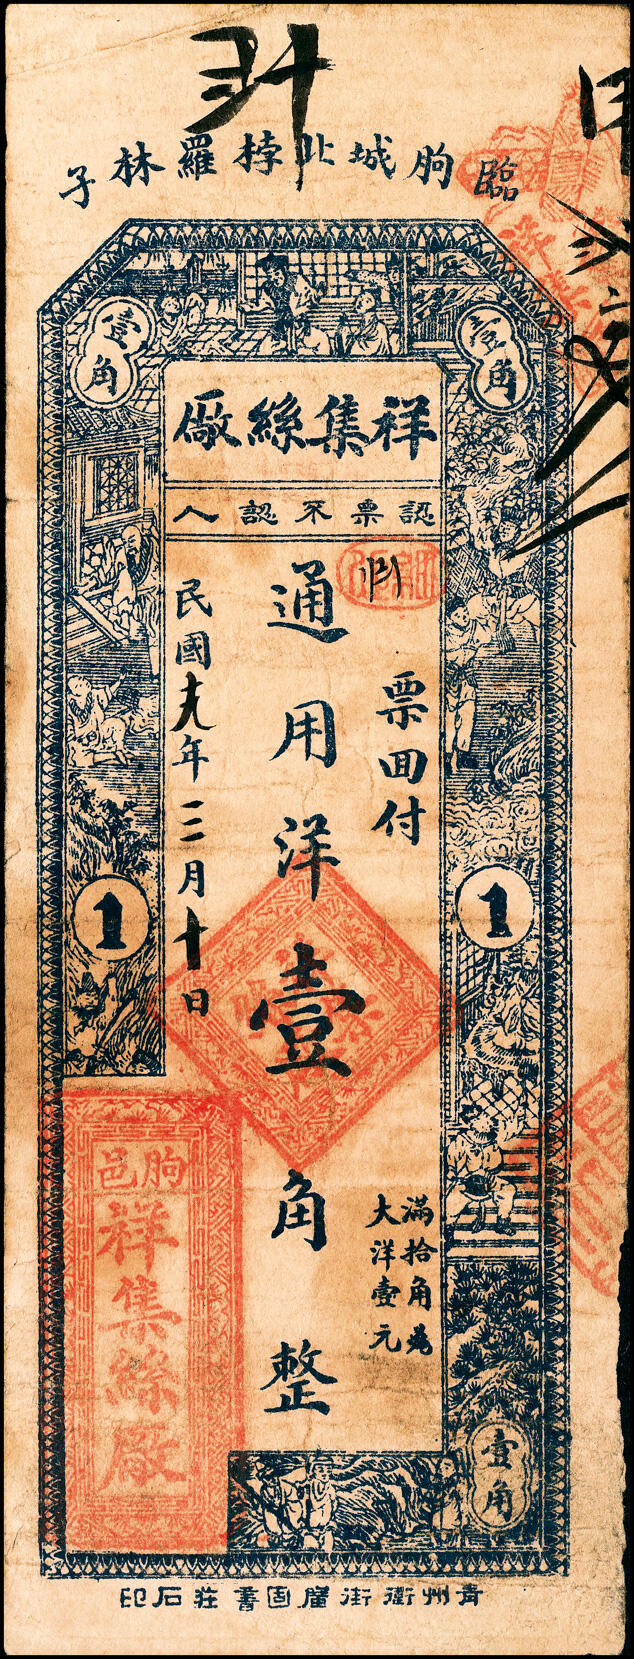 臨朐城北桲羅林子
壹角
壹角
祥集絲廠
認票不認人
票回付
通用洋壹角整
民國十九年三月十日
滿拾角為
大洋壹元
1
1
朐邑
祥集絲廠
壹角
青州衛街廣固書莊石印